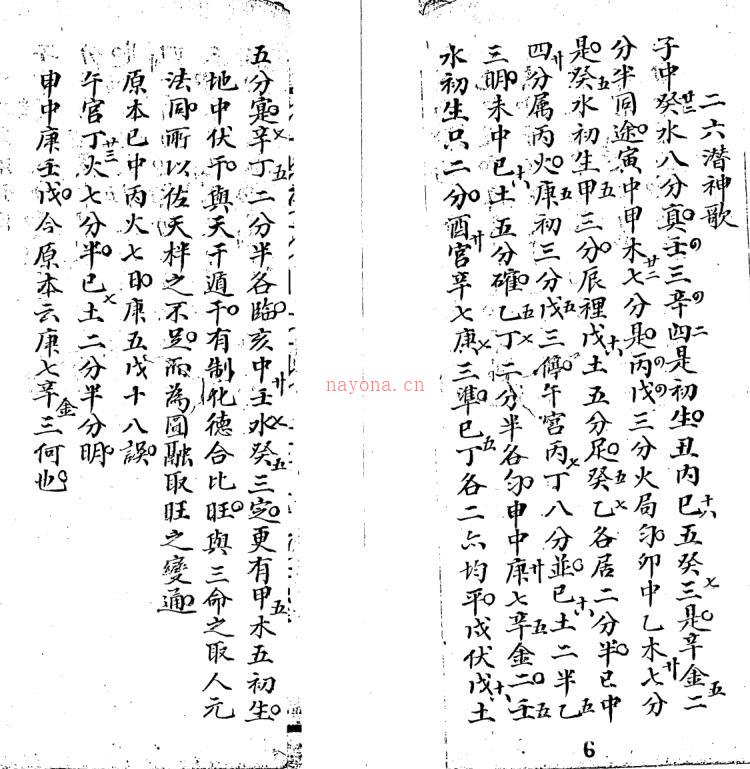 二六潛神歌
子中癸水八分真壬三辛四是初生丑內巳五癸三是辛金二
分半同途寅中甲木七分是丙戊三分火局勻卯中乙木七分
是癸水初生甲三分辰裡戊土五分足癸乙各居二分半巳中
四分属丙火庚初三分戊三停午宮丙丁八分並巳土二半乙
三明未中巳土五分確乙丁二分半各勻申中庚七辛金二壬
水初生只二分酉宮辛七庚三準巳丁各二六均平戌伏戊土
五分寔辛丁二分半各臨亥中壬水癸三定更有甲木五初生
地中伏干與天干遁干有制化德合比旺與三命之取人元
法同所以佐天柈之不足而為圓融取旺之變通
原本巳中丙火七日庚五戊十八誤
午宮丁火七分半巳土二分半分明
申中庚壬戊今原本云庚七辛金三何也
nayona.cn
6